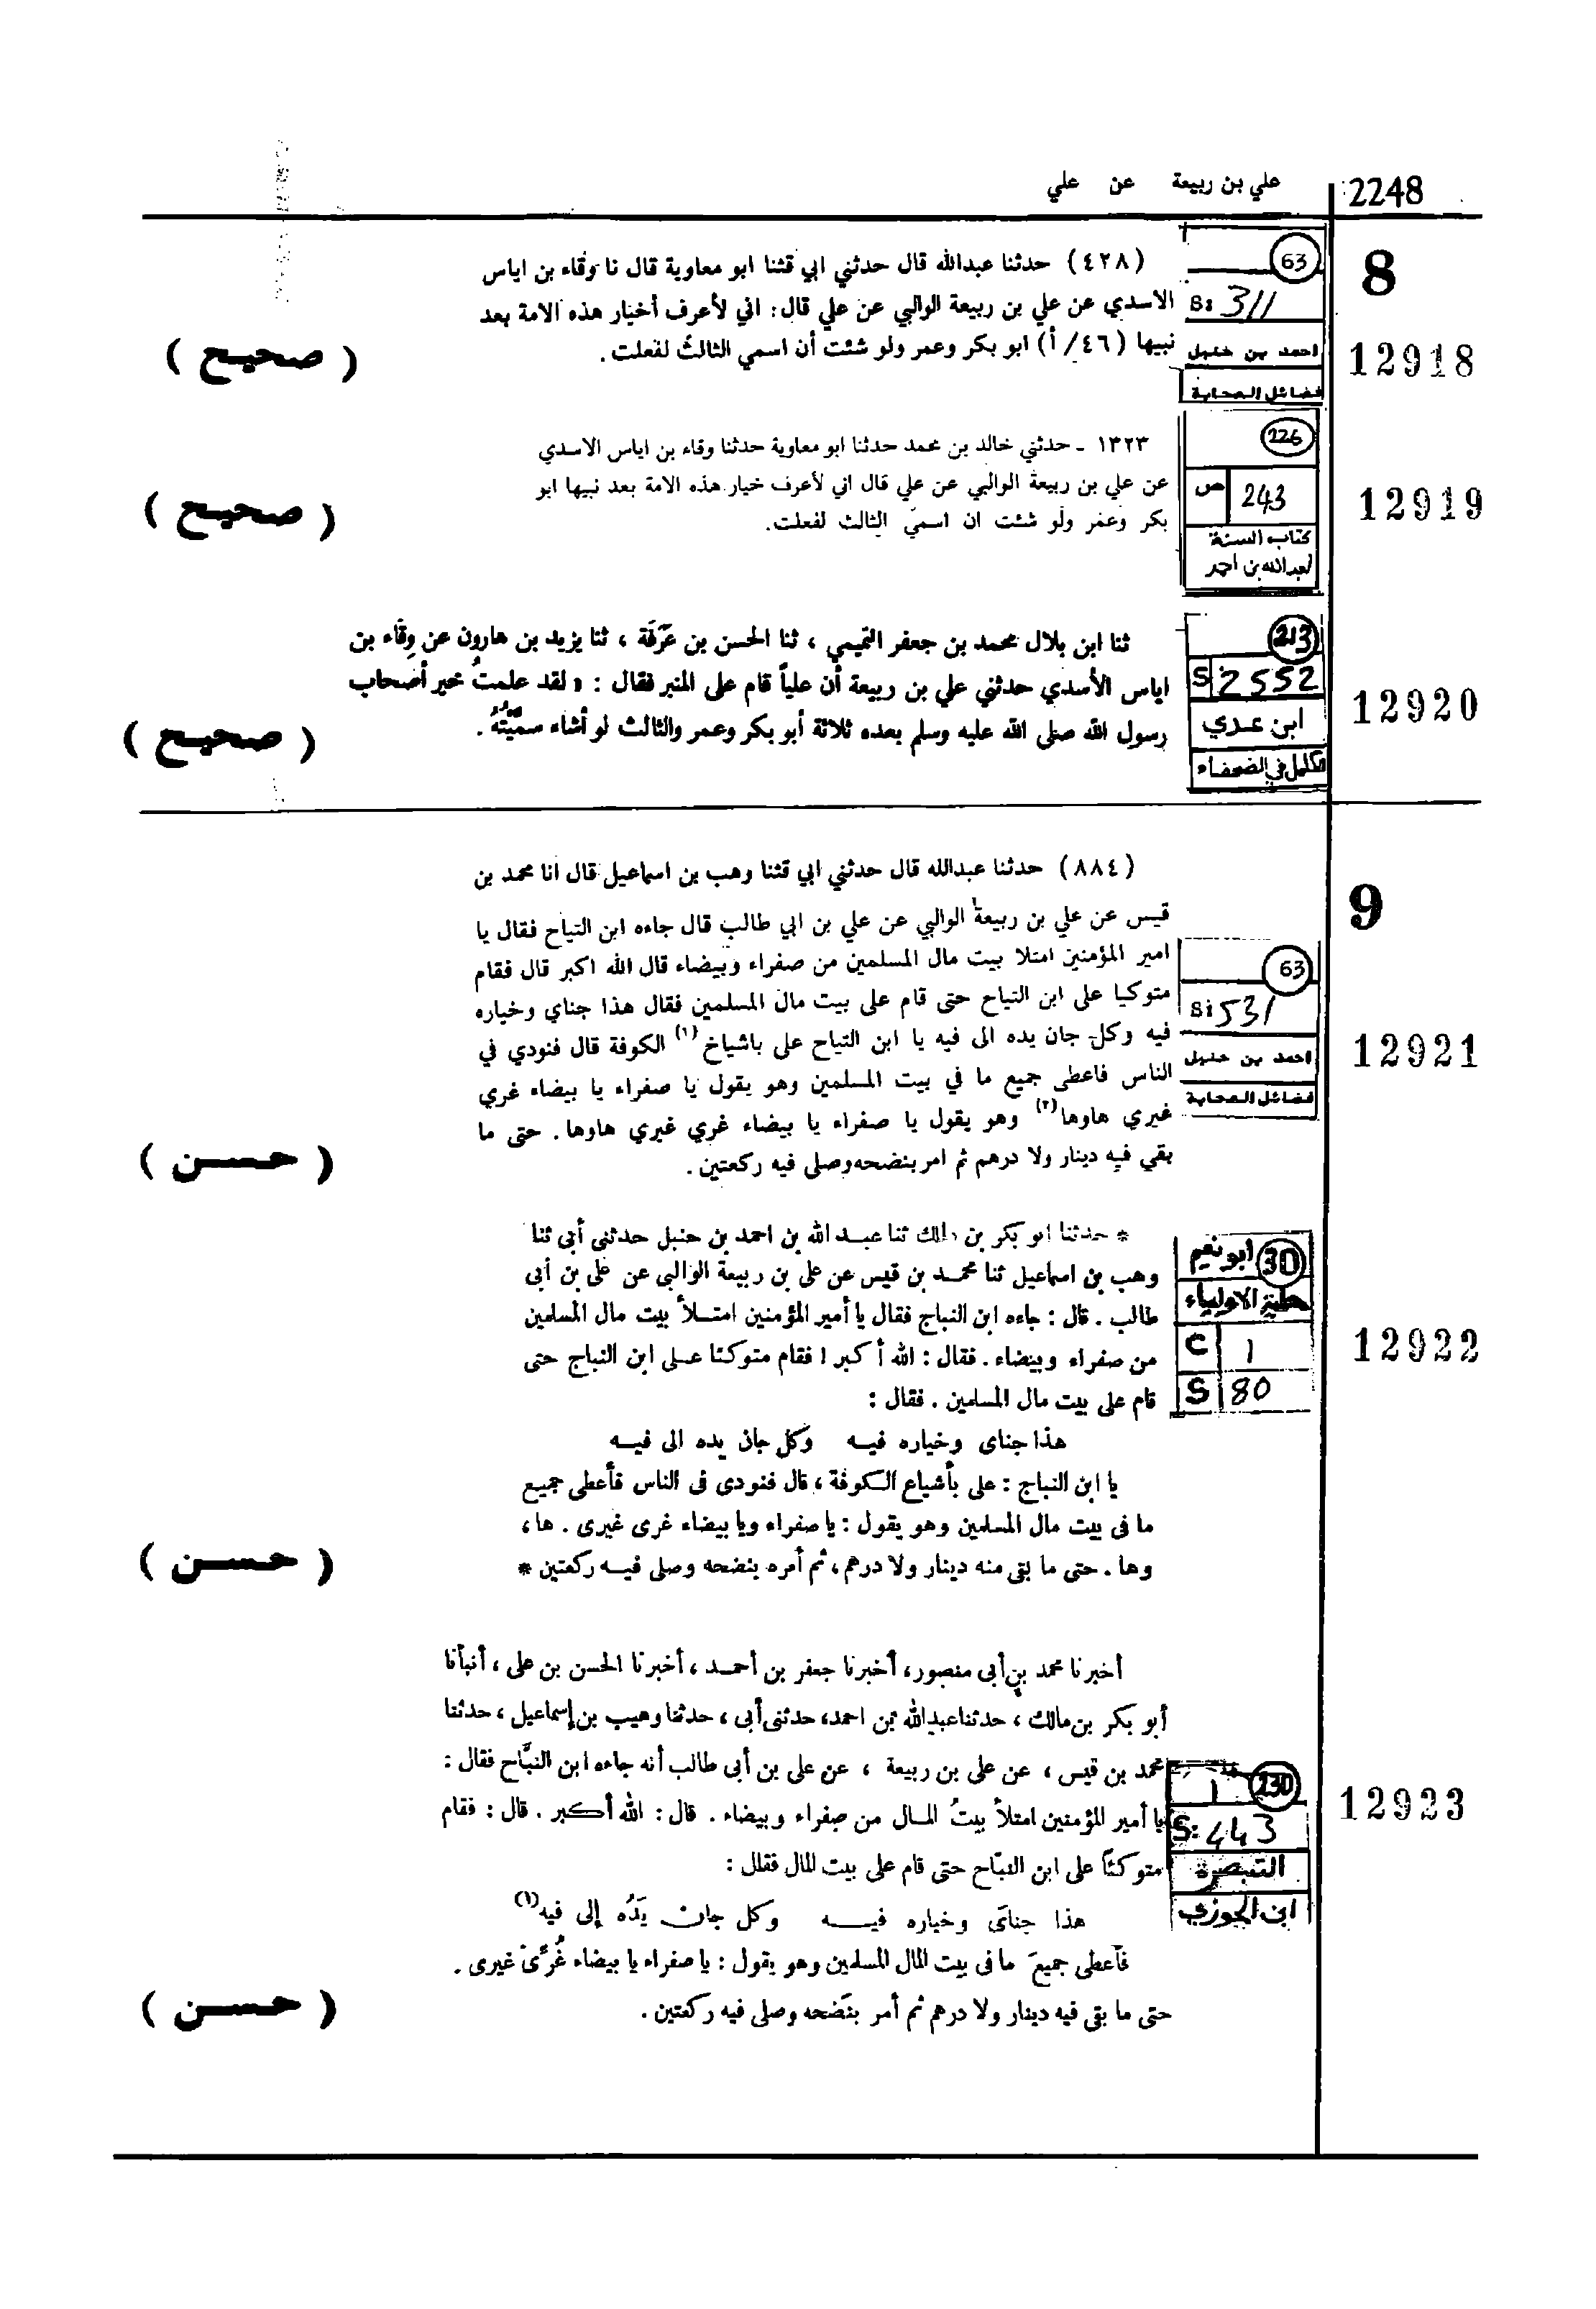 2248
علي بن ربيعة عن علي
8
63
B: 311
احمد بن حنبل
فضائل الصحابة
12918
(٤٢٨) حدثنا عبدالله قال حدثني ابي قثنا ابو معاوية قال نا وقاء بن اياس
الاسدي عن علي بن ربيعة الوالبي عن علي قال: اني لأعرف أخيار هذه الامة بعد
نبيها (٤٦/ أ) ابو بكر وعمر ولو شئت أن اسمي الثالث لفعلت.
( صحيح )
226
ص 243
كتاب السنة
لعبدالله بن احمد
12919
١٣٢٣ - حدثني خالد بن محمد حدثنا ابو معاوية حدثنا وقاء بن اياس الاسدي
عن علي بن ربيعة الوالبي عن علي قال اني لأعرف خيار هذه الامة بعد نبيها ابو
بكر وعمر ولو شئت ان اسمي الثالث لفعلت.
( صحيح )
213
S 2552
ابن عدي
الكامل في الضعفاء
12920
ثنا ابن بلال محمد بن جعفر التميمي ، ثنا الحسن بن عَرَفَة ، ثنا يزيد بن هارون عن وِقَاء بن
اياس الأسدي حدثني علي بن ربيعة أن علياً قام على المنبر فقال : « لقد علمتُ خير أصحاب
رسول الله صلى الله عليه وسلم بعده ثلاثة أبو بكر وعمر والثالث لو أشاء سمَّيتُهُ .
( صحيح )
9
63
B: 531
احمد بن حنبل
فضائل الصحابة
12921
(٨٨٤) حدثنا عبدالله قال حدثني ابي قثنا وهب بن اسماعيل قال انا محمد بن
قيس عن علي بن ربيعة الوالبي عن علي بن ابي طالب قال جاءه ابن التياح فقال يا
امير المؤمنين امتلا بيت مال المسلمين من صفراء وبيضاء قال الله اكبر قال فقام
متوكيا على ابن التياح حتى قام على بيت مال المسلمين فقال هذا جناي وخياره
فيه وكل جان يده الى فيه يا ابن التياح علي باشياخ (١) الكوفة قال فنودي في
الناس فاعطى جميع ما في بيت المسلمين وهو يقول يا صفراء يا بيضاء غري
غيري هاوها (٢) وهو يقول يا صفراء يا بيضاء غري غيري هاوها. حتى ما
بقي فيه دينار ولا درهم ثم امر بنضحه وصلى فيه ركعتين.
( حسن )
30 ابو نعيم
حلية الاولياء
C 1
S 80
12922
* حدثنا ابو بكر بن مالك ثنا عبد الله بن احمد بن حنبل حدثنى أبى ثنا
وهب بن اسماعيل ثنا محمد بن قيس عن على بن ربيعة الوالبى عن على بن أبى
طالب . قال : جاءه ابن النباج فقال يا أمير المؤمنين امتلأ بيت مال المسلمين
من صفراء وبيضاء . فقال : الله أكبر ! فقام متوكئا على ابن النباج حتى
قام على بيت مال المسلمين . فقال :
هذا جناى وخياره فيه وكل جان يده الى فيه
يا ابن النباج : على بأشياع الكوفة ، قال فنودى فى الناس فأعطى جميع
ما فى بيت مال المسلمين وهو يقول : يا صفراء ويا بيضاء غرى غيرى . ها ،
وها . حتى ما بقى منه دينار ولا درهم ، ثم أمره بنضحه وصلى فيه ركعتين *
( حسن )
230
1
S: 443
التبصرة
ابن الجوزي
12923
أخبرنا محمد بن أبى منصور ، أخبرنا جعفر بن أحمد ، أخبرنا الحسن بن على ، أنبأنا
أبو بكر بن مالك ، حدثنا عبد الله بن احمد ، حدثنى أبى ، حدثنا وهيب بن إسماعيل ، حدثنا
محمد بن قيس ، عن على بن ربيعة ، عن على بن أبى طالب أنه جاءه ابن النبَّاح فقال :
يا أمير المؤمنين امتلأ بيتُ المال من صفراء وبيضاء . قال : الله أكبر . قال : فقام
متوكئاً على ابن النبّاح حتى قام على بيت المال فقال :
هذا جناىَ وخياره فيه وكل جان يَدُه إلى فيه (١)
فأعطى جميعَ ما فى بيت المال المسلمين وهو يقول : يا صفراء يا بيضاء غُرِّى غيرى .
حتى ما بقى فيه دينار ولا درهم ثم أمر بنَضحه وصلى فيه ركعتين .
( حسن )